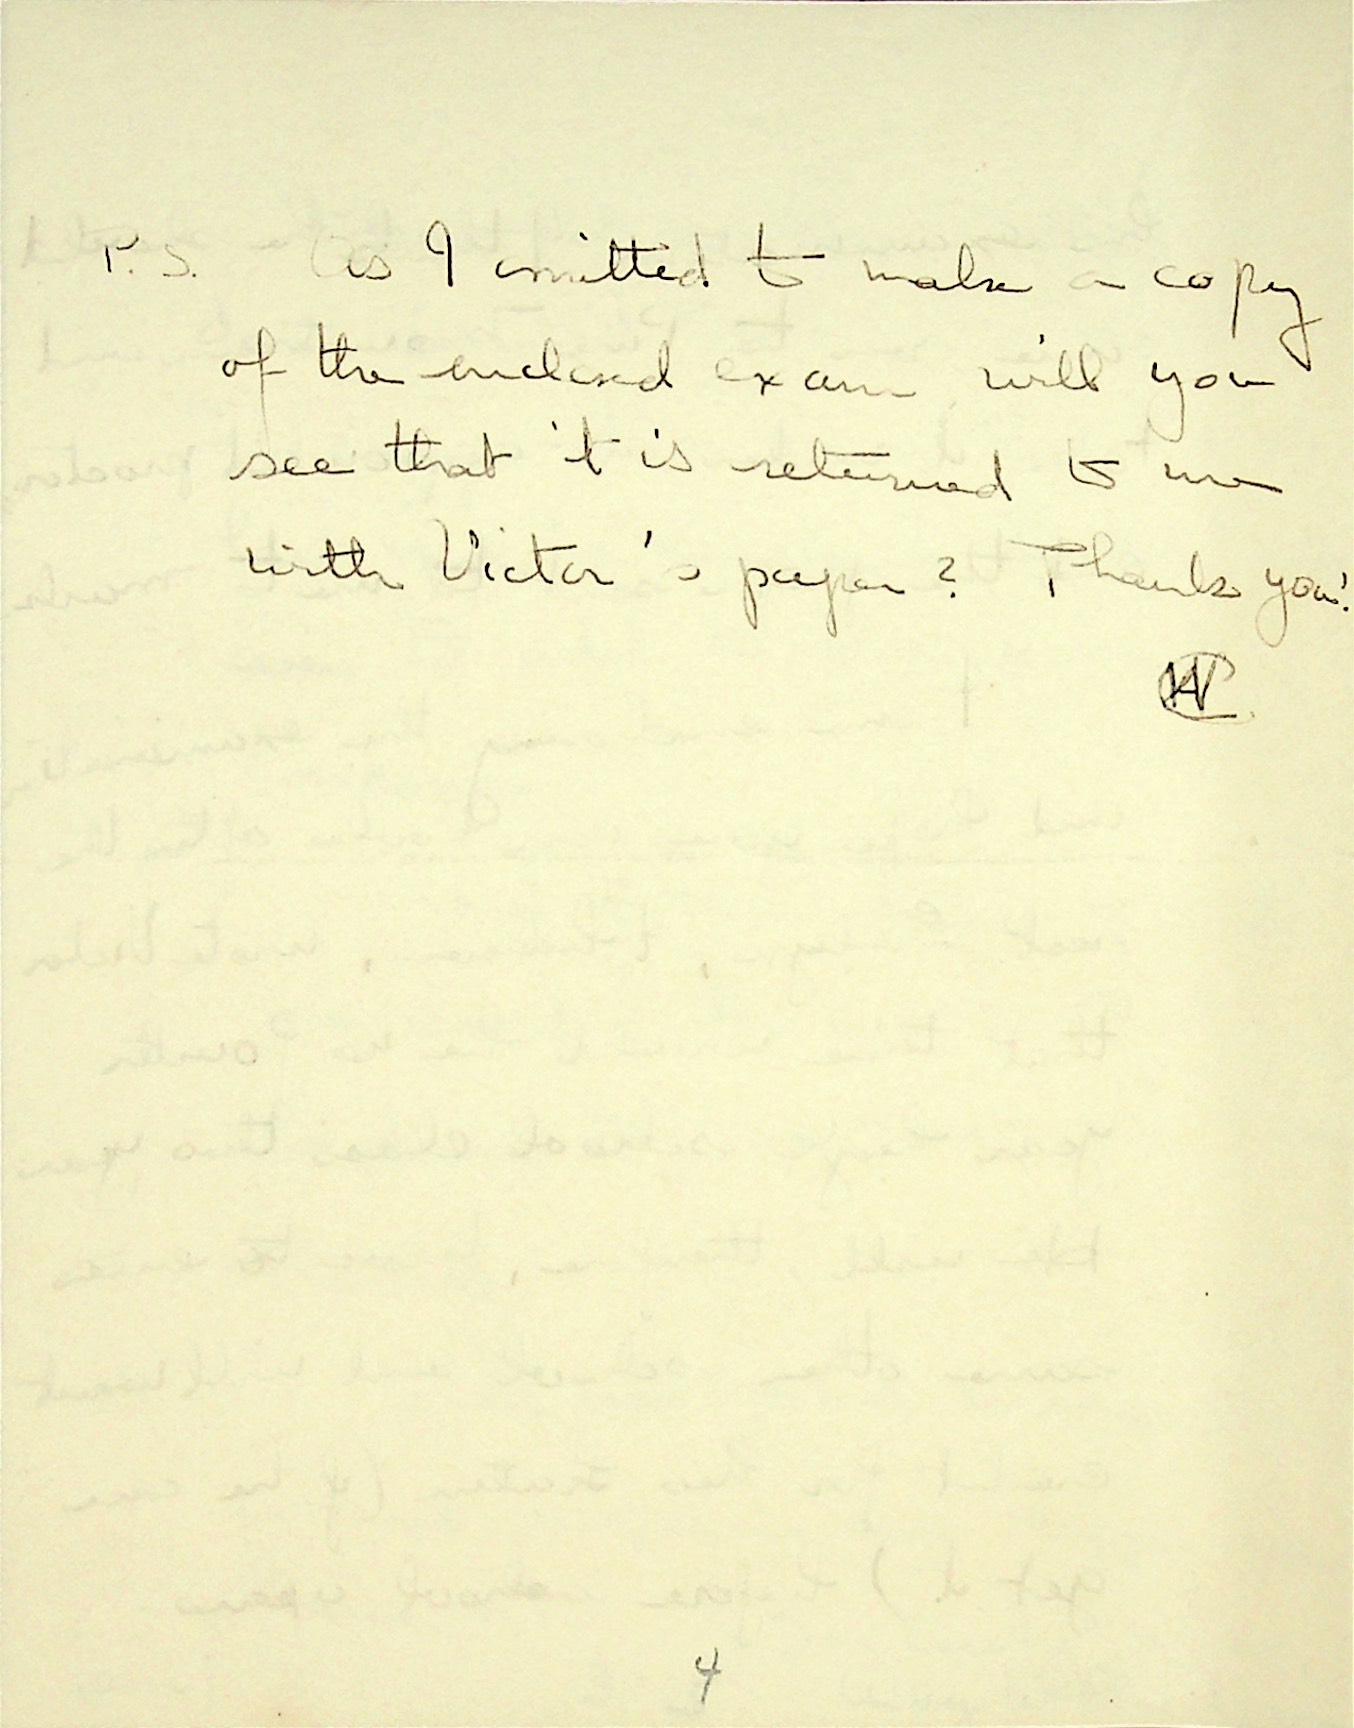 P.S. As I omitted to make a copy
of the enclosed exam will you
see that it is returned to me
with Victor's paper? Thank you!
4